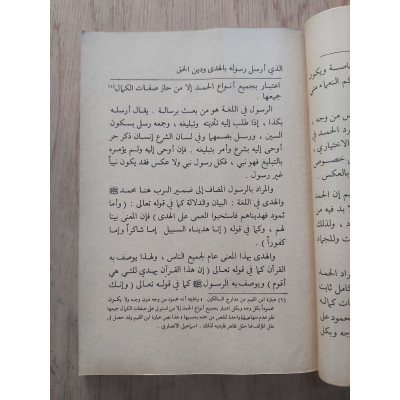 الذي أرسل رسوله بالهدى ودين الحق
اعتبار بجميع أنواع الحمد إلا من حاز صفات الكمال (١)
جميعها .
الرسول في اللغة هو من بعث برسالة . يقال أرسله
بكذا ، إذا طلب إليه تأديته وتبليغه ، وجمعه رسل بسكون
السين ، ورسل بضمها وفي لسان الشرع إنسان ذكر حر
أوحى إليه بشرع وأمر بتبليغه ، فإن أوحى إليه ولم يؤمر
بالتبليغ فهو نبي ، فكل رسول نبي ولا عكس فقد يكون نبياً
غير رسول .
والمراد بالرسول المضاف إلى ضمير الرب هنا محمد ﷺ
والهدى في اللغة : البيان والدلالة كما في قوله تعالى : ( وأما
ثمود فهديناهم فاستحبوا العمى على الهدى ) فإن المعنى بينا
لهم ، وكما في قوله ( إنا هديناه السبيل إما شاكراً وإما
كفوراً ) .
والهدى بهذا المعنى عام لجميع الناس ، ولهذا يوصف به
القرآن كما في قوله تعالى ( إن هذا القرآن يهدي للتي هي
أقوم ) ويوصف به الرسول ﷺ كما في قوله ( وإنك
(١) عبارة ابن القيم من مدارج السالكين
اصة ويكون
كم النعماء
س من وجه
رد الحمد في
الاختياري ،
خصوص
بالعكس .
إن الحمد
بد فيه من
، ولذلك
وللجماد
راد الحمد
كامل ثابت
كمال
محمود على
وجه وبكل